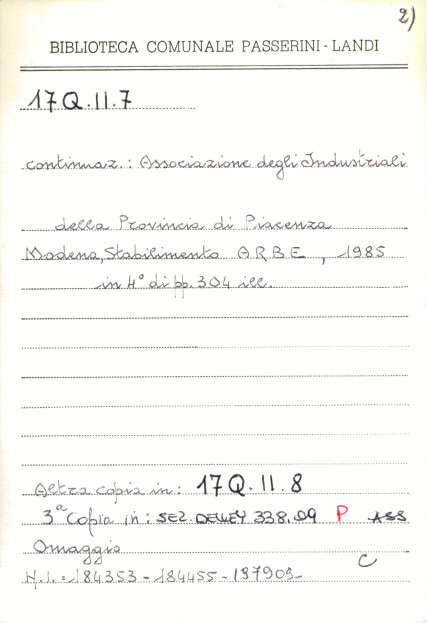 2)
BIBLIOTECA COMUNALE PASSERINI-LANDI
17Q.II.7
continuaz.: Associazione degli Industriali
della Provincia di Piacenza
Modena, Stabilimento ARBE, 1985
in 4° di pp. 304 ill.
Altra copia in: 17Q.II.8
3ª Copia in: SEZ. DEWEY 338.09 P ASS
Omaggio C
N.I. = 184353-184455-197909-